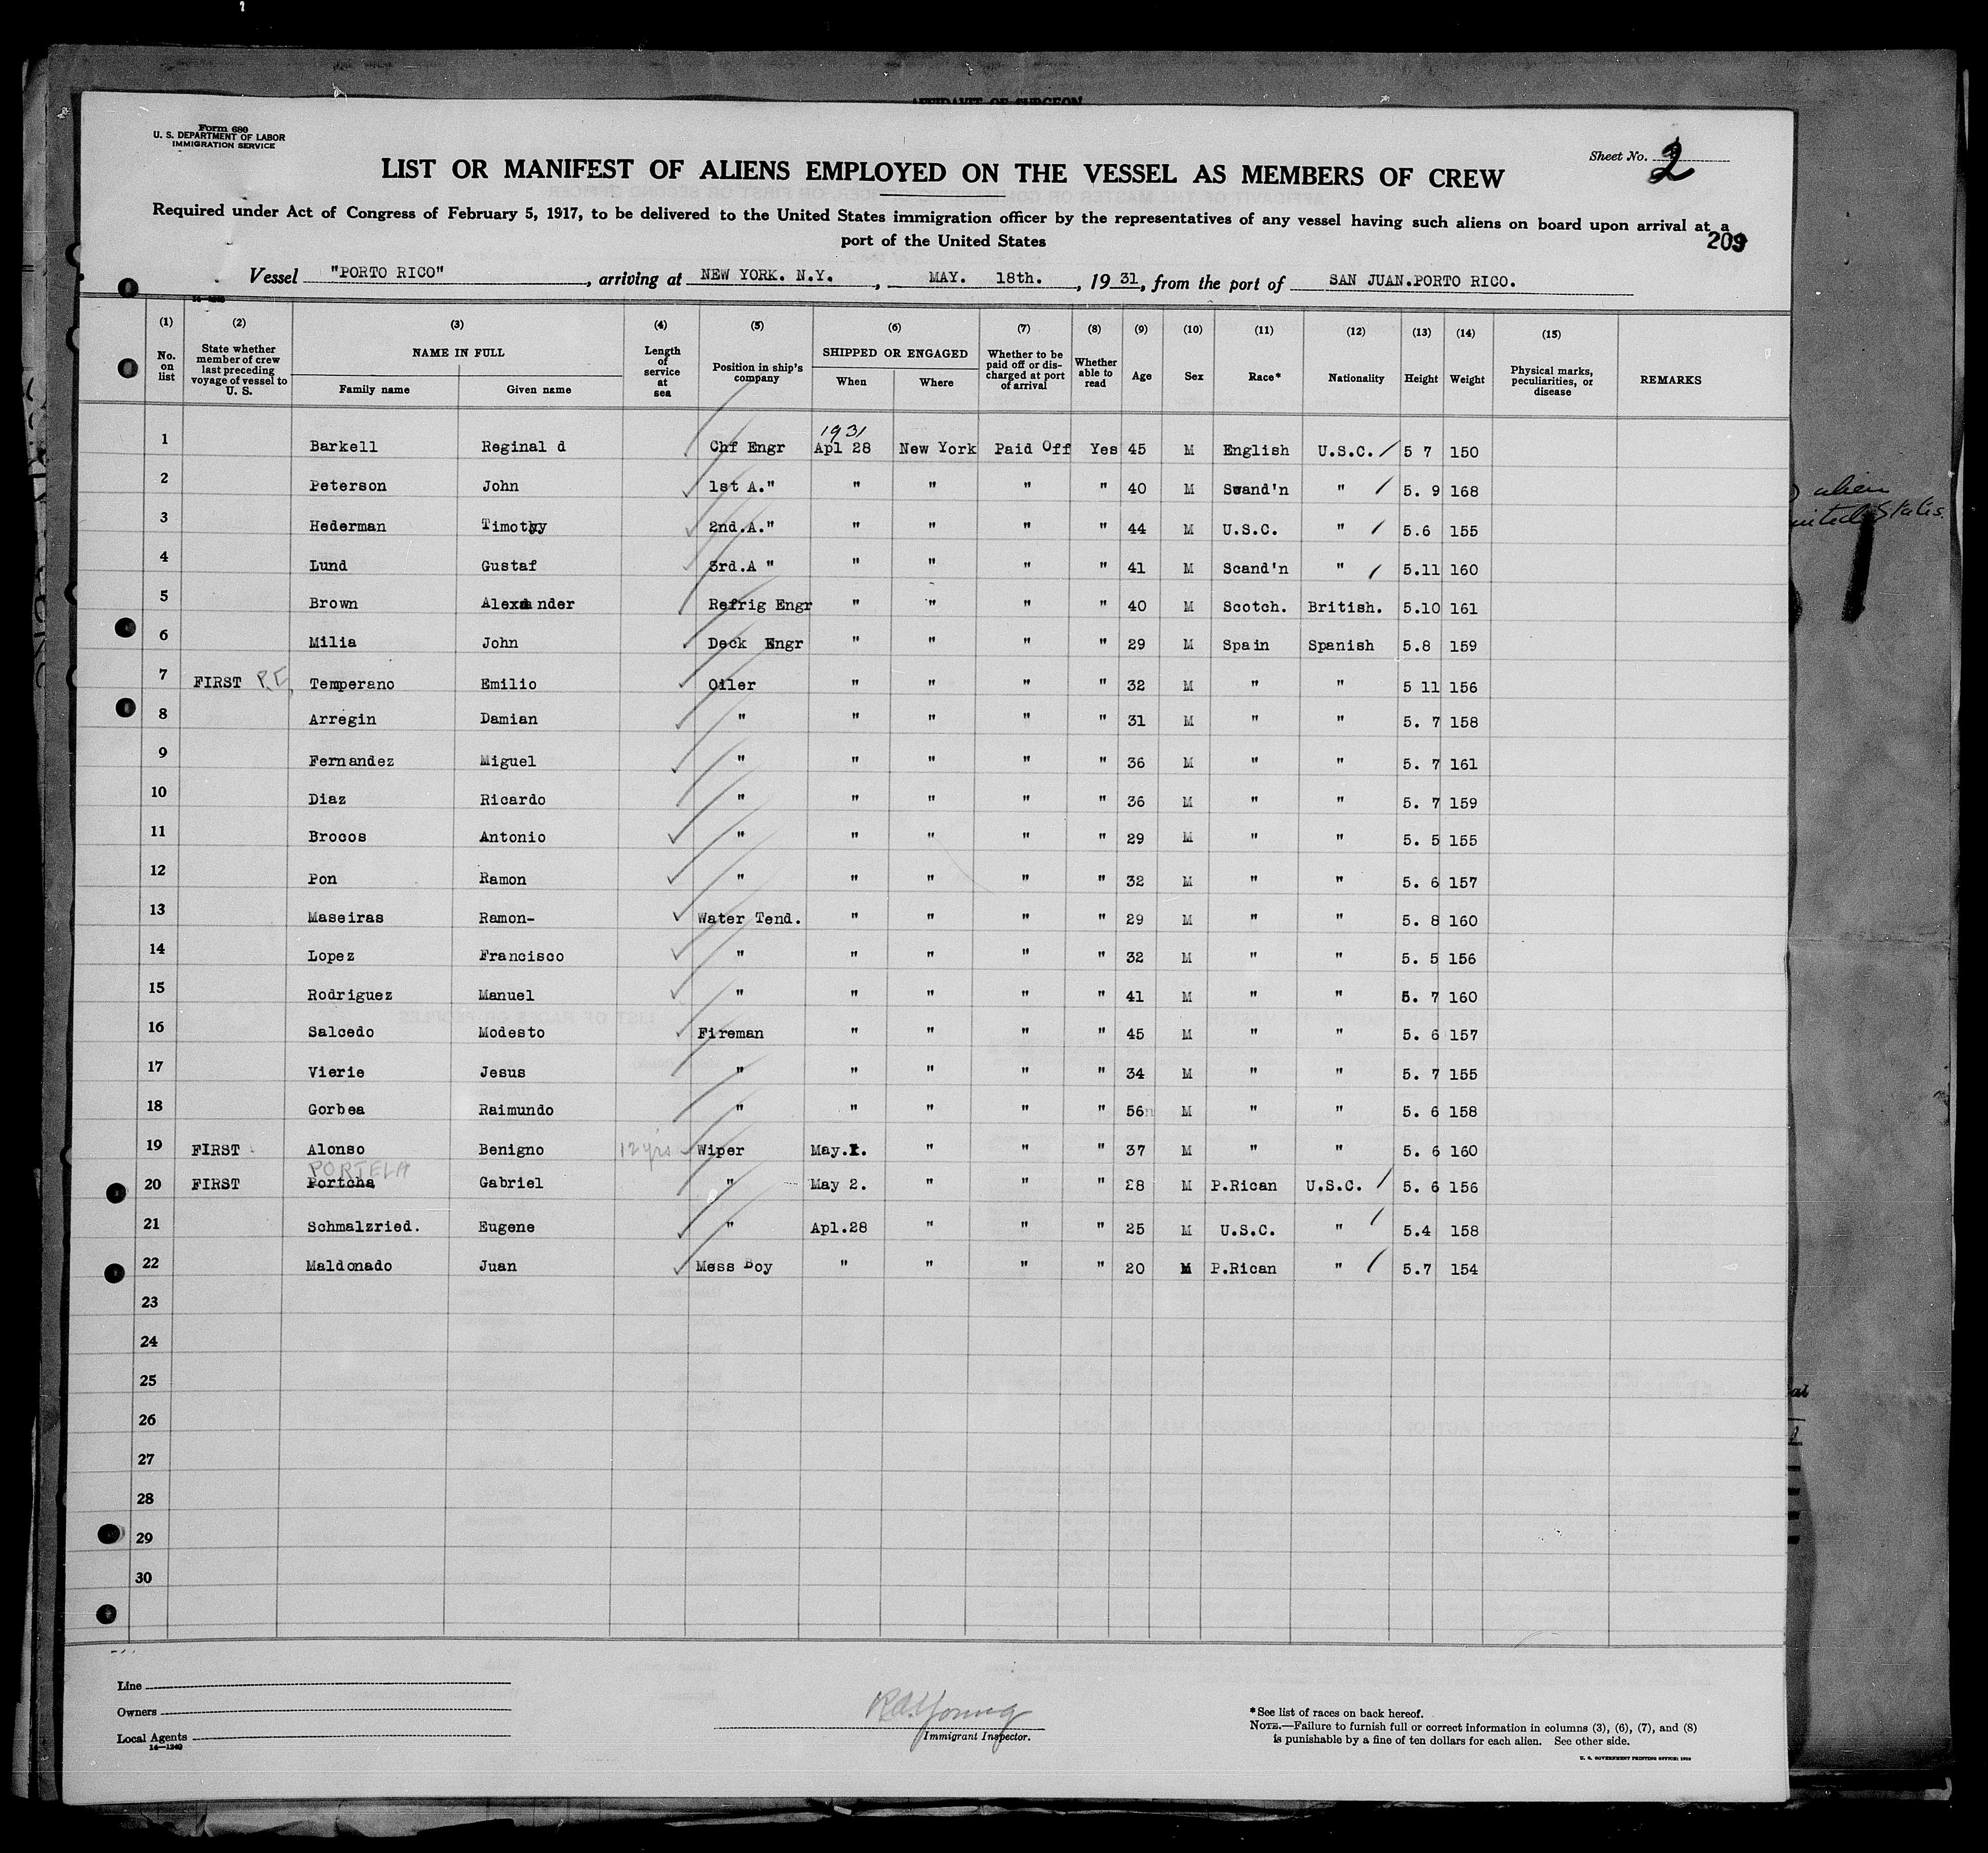 AFFIDAVIT OF SURGEON
Form 680
U. S. DEPARTMENT OF LABOR
IMMIGRATION SERVICE
Sheet No. 2
LIST OR MANIFEST OF ALIENS EMPLOYED ON THE VESSEL AS MEMBERS OF CREW
Required under Act of Congress of February 5, 1917, to be delivered to the United States immigration officer by the representatives of any vessel having such aliens on board upon arrival at a
port of the United States
209
Vessel "PORTO RICO", arriving at NEW YORK. N.Y., MAY. 18th., 1931, from the port of SAN JUAN.PORTO RICO.
(1) (2) (3) (4) (5) (6) (7) (8) (9) (10) (11) (12) (13) (14) (15)
No. on list State whether member of crew last preceding voyage of vessel to U. S. NAME IN FULL Family name Given name Length of service at sea Position in ship's company SHIPPED OR ENGAGED When Where Whether to be paid off or discharged at port of arrival Whether able to read Age Sex Race* Nationality Height Weight Physical marks, peculiarities, or disease REMARKS
1931
1 Barkell Reginal d Chf Engr Apl 28 New York Paid Off Yes 45 M English U.S.C. 5 7 150
2 Peterson John 1st A." " " " " 40 M Scand'n " 5. 9 168
3 Hederman Timothy 2nd.A." " " " " 44 M U.S.C. " 5.6 155
4 Lund Gustaf 3rd.A " " " " " 41 M Scand'n " 5.11 160
5 Brown Alexander Refrig Engr " " " " 40 M Scotch. British. 5.10 161
6 Milia John Deck Engr " " " " 29 M Spain Spanish 5.8 159
7 FIRST Temperano Emilio Oiler " " " " 32 M " " 5 11 156
8 Arregin Damian " " " " " 31 M " " 5. 7 158
9 Fernandez Miguel " " " " " 36 M " " 5. 7 161
10 Diaz Ricardo " " " " " 36 M " " 5. 7 159
11 Brocos Antonio " " " " " 29 M " " 5. 5 155
12 Pon Ramon " " " " " 32 M " " 5. 6 157
13 Maseiras Ramon- Water Tend. " " " " 29 M " " 5. 8 160
14 Lopez Francisco " " " " " 32 M " " 5. 5 156
15 Rodriguez Manuel " " " " " 41 M " " 5. 7 160
16 Salcedo Modesto Fireman " " " " 45 M " " 5. 6 157
17 Vierie Jesus " " " " " 34 M " " 5. 7 155
18 Gorbea Raimundo " " " " " 56 M " " 5. 6 158
19 FIRST Alonso Benigno 12 yrs Wiper May.1. " " " 37 M " " 5. 6 160
PORTELA
20 FIRST Portcha Gabriel " May 2. " " " 28 M P.Rican U.S.C. 5. 6 156
21 Schmalzried. Eugene " Apl.28 " " " 25 M U.S.C. " 5.4 158
22 Maldonado Juan Mess Boy " " " " 20 M P.Rican " 5.7 154
23
24
25
26
27
28
29
30
Line
Owners
Local Agents
14—1240
R.A. Young
Immigrant Inspector.
*See list of races on back hereof.
NOTE.—Failure to furnish full or correct information in columns (3), (6), (7), and (8)
is punishable by a fine of ten dollars for each alien. See other side.
alien
States.